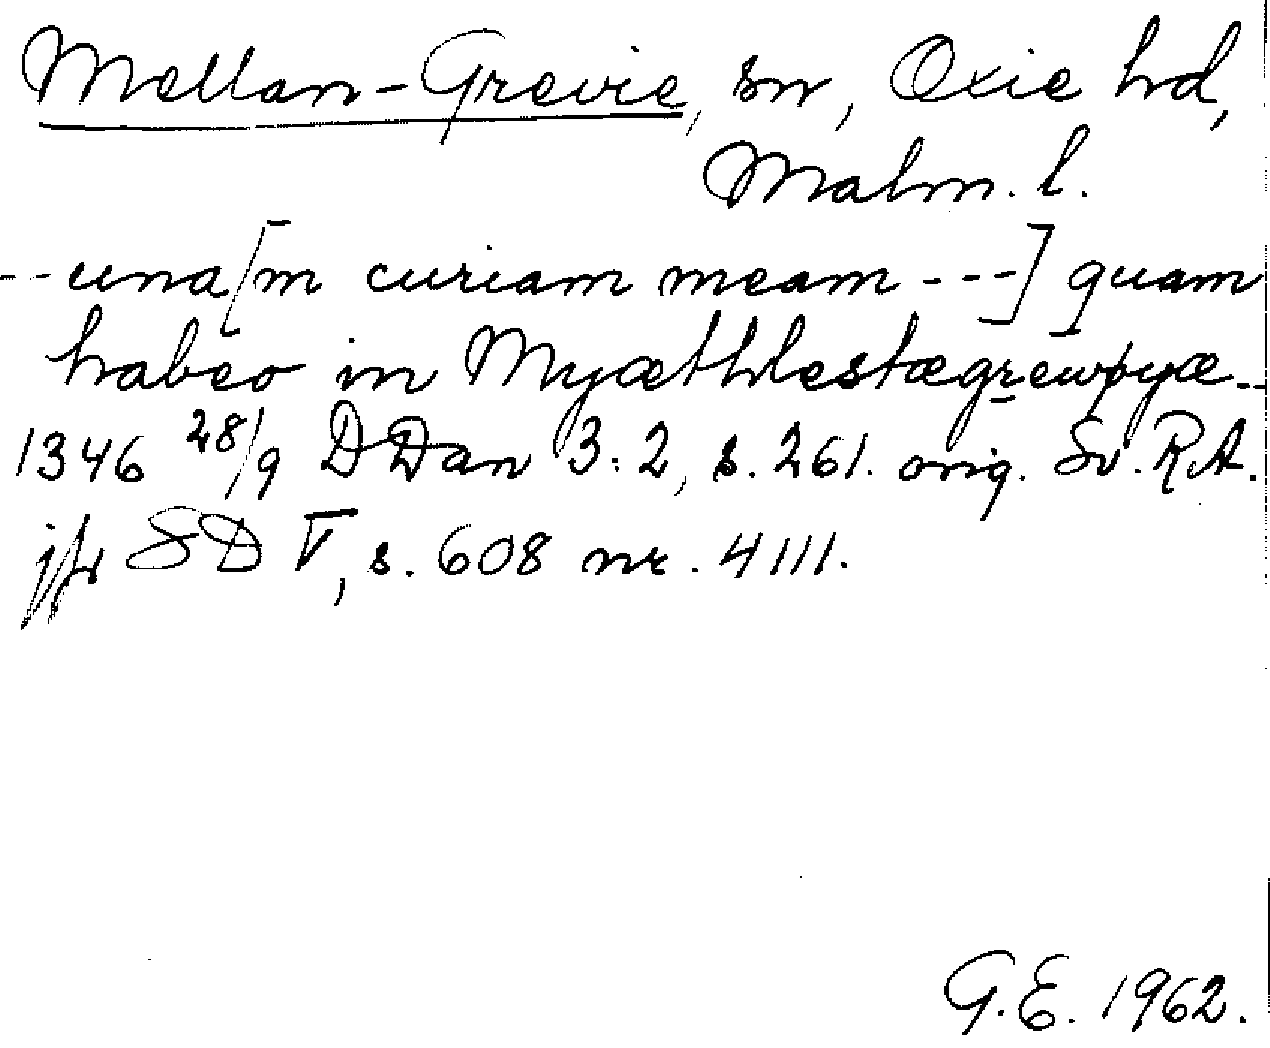 Mellan-Grevie, sn, Oxie hd,
Malm. l.
-- una[m curiam meam ---] quam
habeo in Myæthlestægrewþyæ--
1346 28/9 DDan 3:2, s. 261. orig. Sv. RA.
jfr SD V, s. 608 nr. 4111.
G.E. 1962.